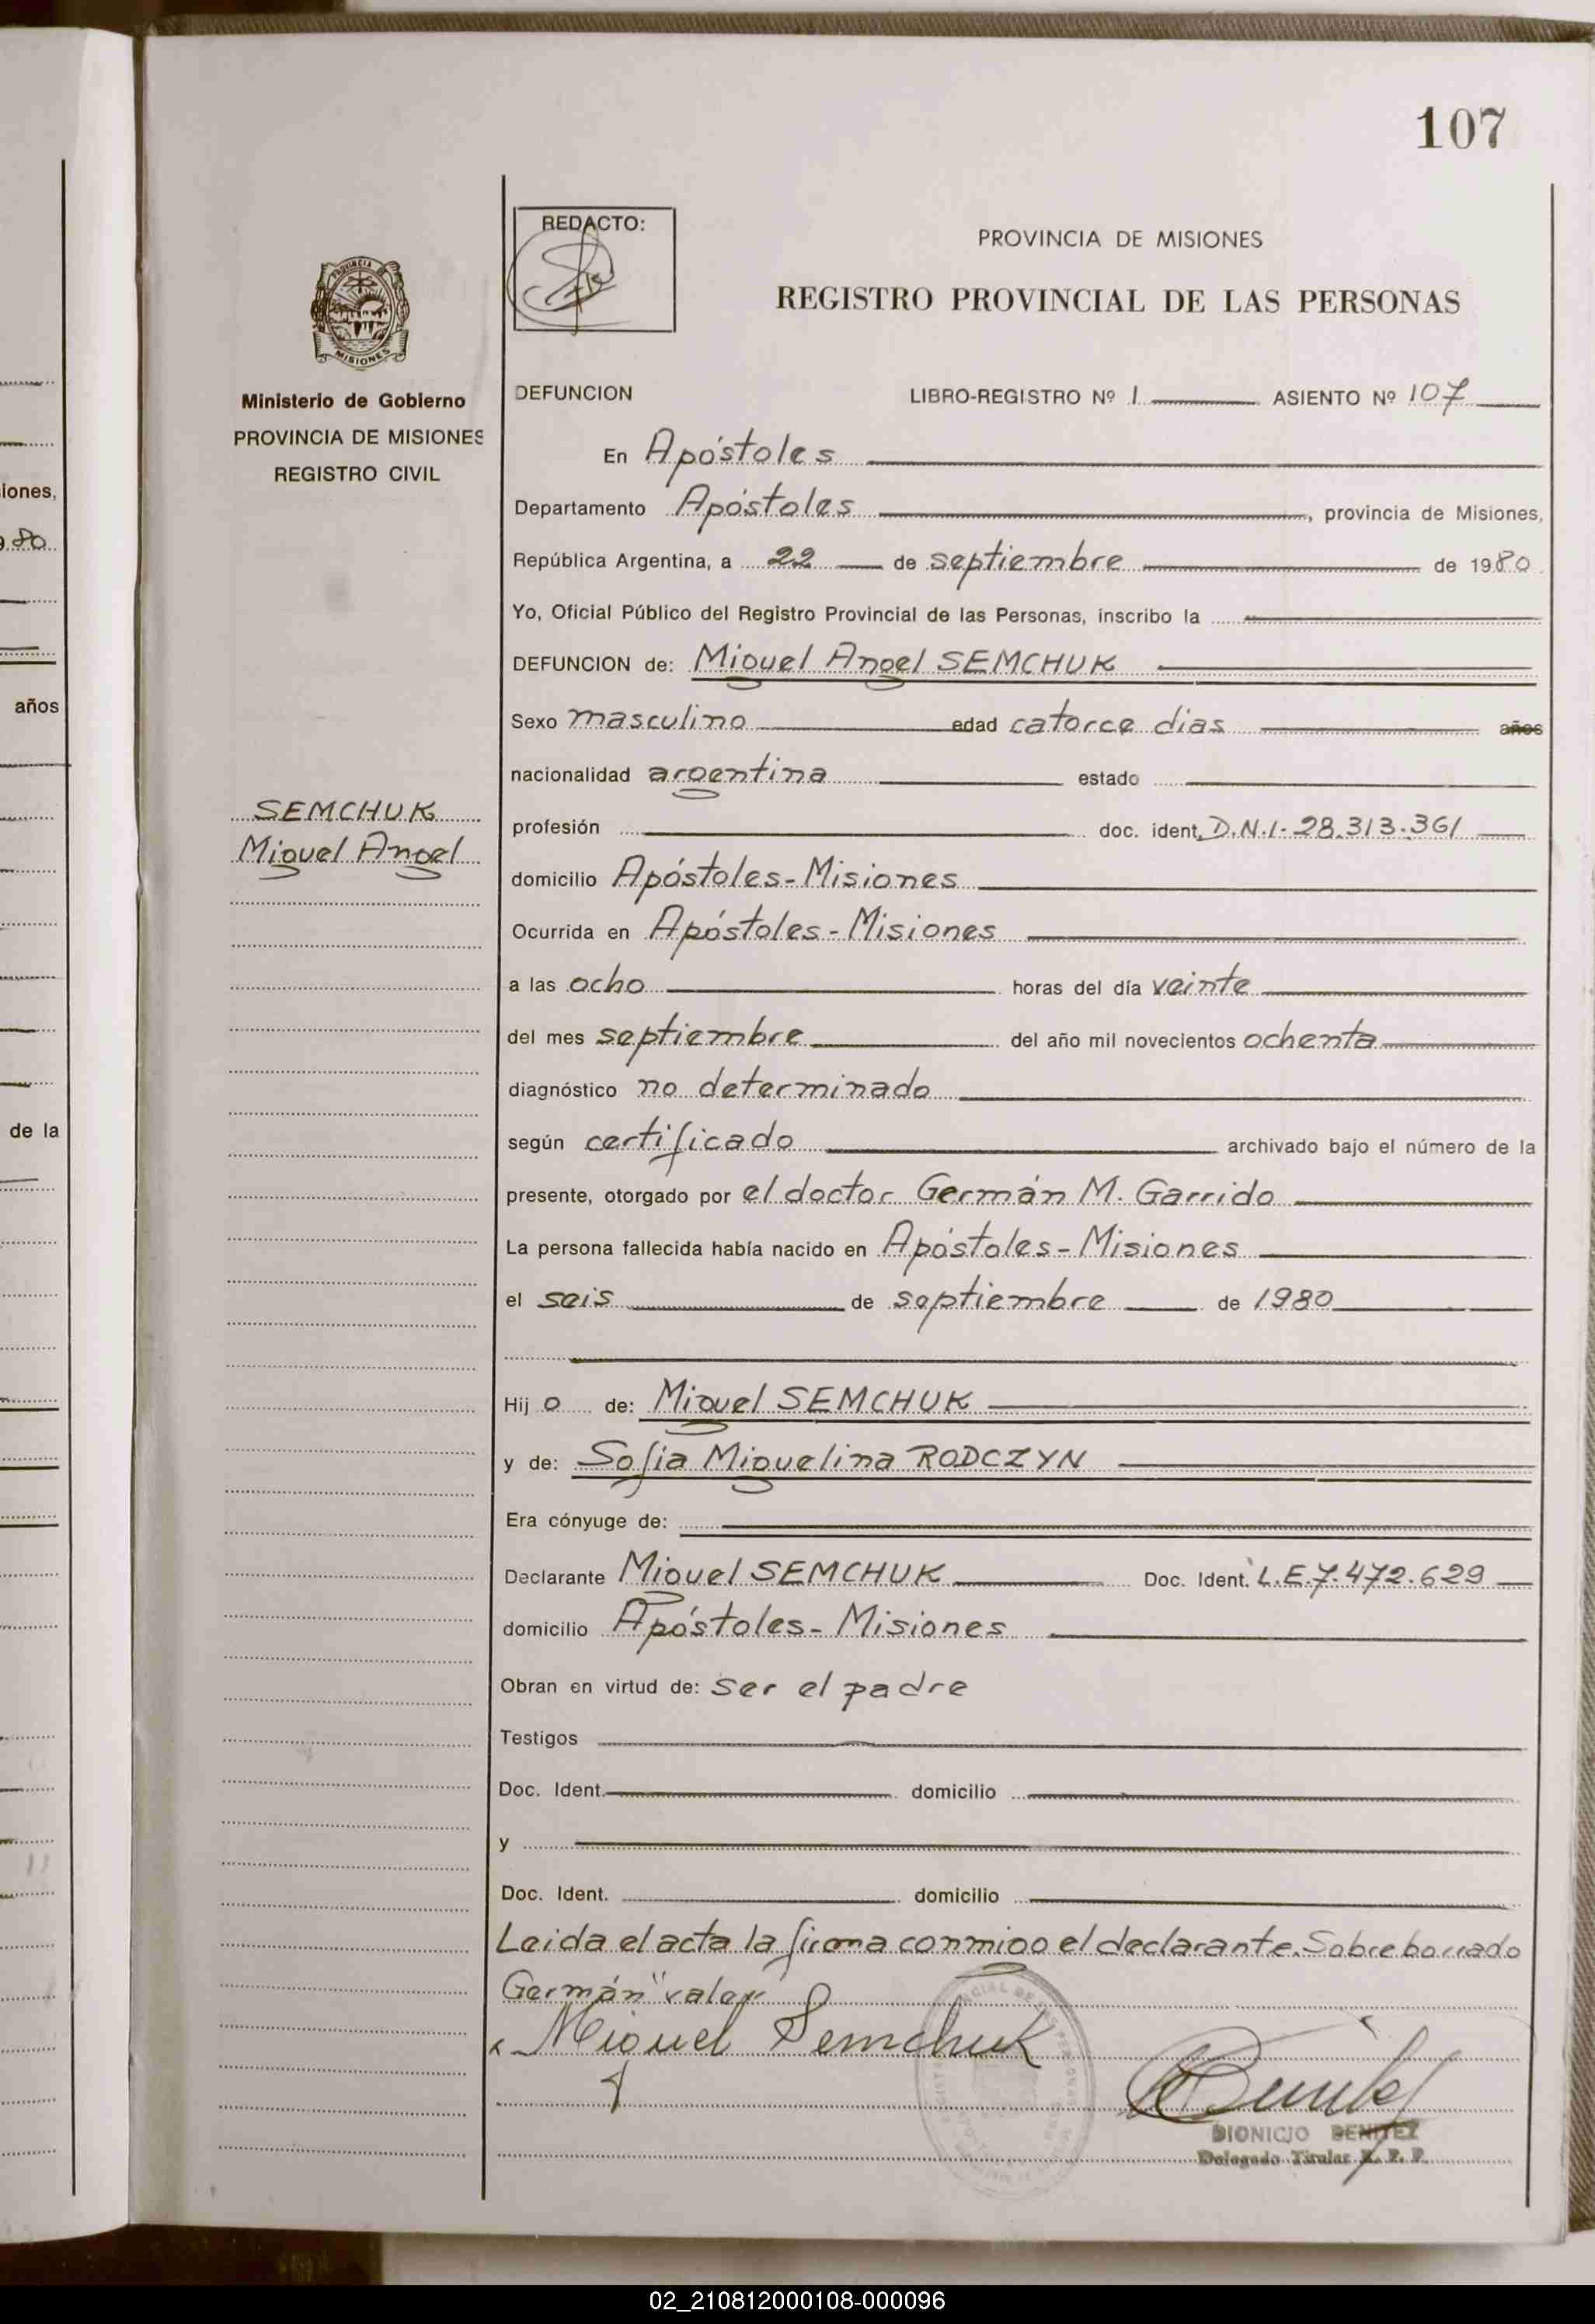 107
REDACTO:
PROVINCIA DE MISIONES
REGISTRO PROVINCIAL DE LAS PERSONAS
PROVINCIA DE
MISIONES
Ministerio de Gobierno
PROVINCIA DE MISIONES
REGISTRO CIVIL
SEMCHUK
Miguel Angel
iones,
80
años
de la
DEFUNCION LIBRO-REGISTRO Nº 1 ASIENTO Nº 107
En Apóstoles
Departamento Apóstoles, provincia de Misiones,
República Argentina, a 22 de septiembre de 1980
Yo, Oficial Público del Registro Provincial de las Personas, inscribo la
DEFUNCION de: Miguel Angel SEMCHUK
Sexo masculino edad catorce dias años
nacionalidad argentina estado
profesión doc. ident. D.N.I. 28.313.361
domicilio Apóstoles-Misiones
Ocurrida en Apóstoles-Misiones
a las ocho horas del día veinte
del mes septiembre del año mil novecientos ochenta
diagnóstico no determinado
según certificado archivado bajo el número de la
presente, otorgado por el doctor Germán M. Garrido
La persona fallecida había nacido en Apóstoles-Misiones
el seis de septiembre de 1980
Hij o de: Miguel SEMCHUK
y de: Sofia Miguelina RODCZYN
Era cónyuge de:
Declarante Miguel SEMCHUK Doc. Ident. L.E.7.472.629
domicilio Apóstoles-Misiones
Obran en virtud de: ser el padre
Testigos
Doc. Ident. domicilio
y
Doc. Ident. domicilio
Leida el acta la firma conmigo el declarante. Sobre borrado
Germán" vale
Miguel Semchuk
DIONICIO BENITEZ
Delegado Titular R. P. P.
02_210812000108-000096